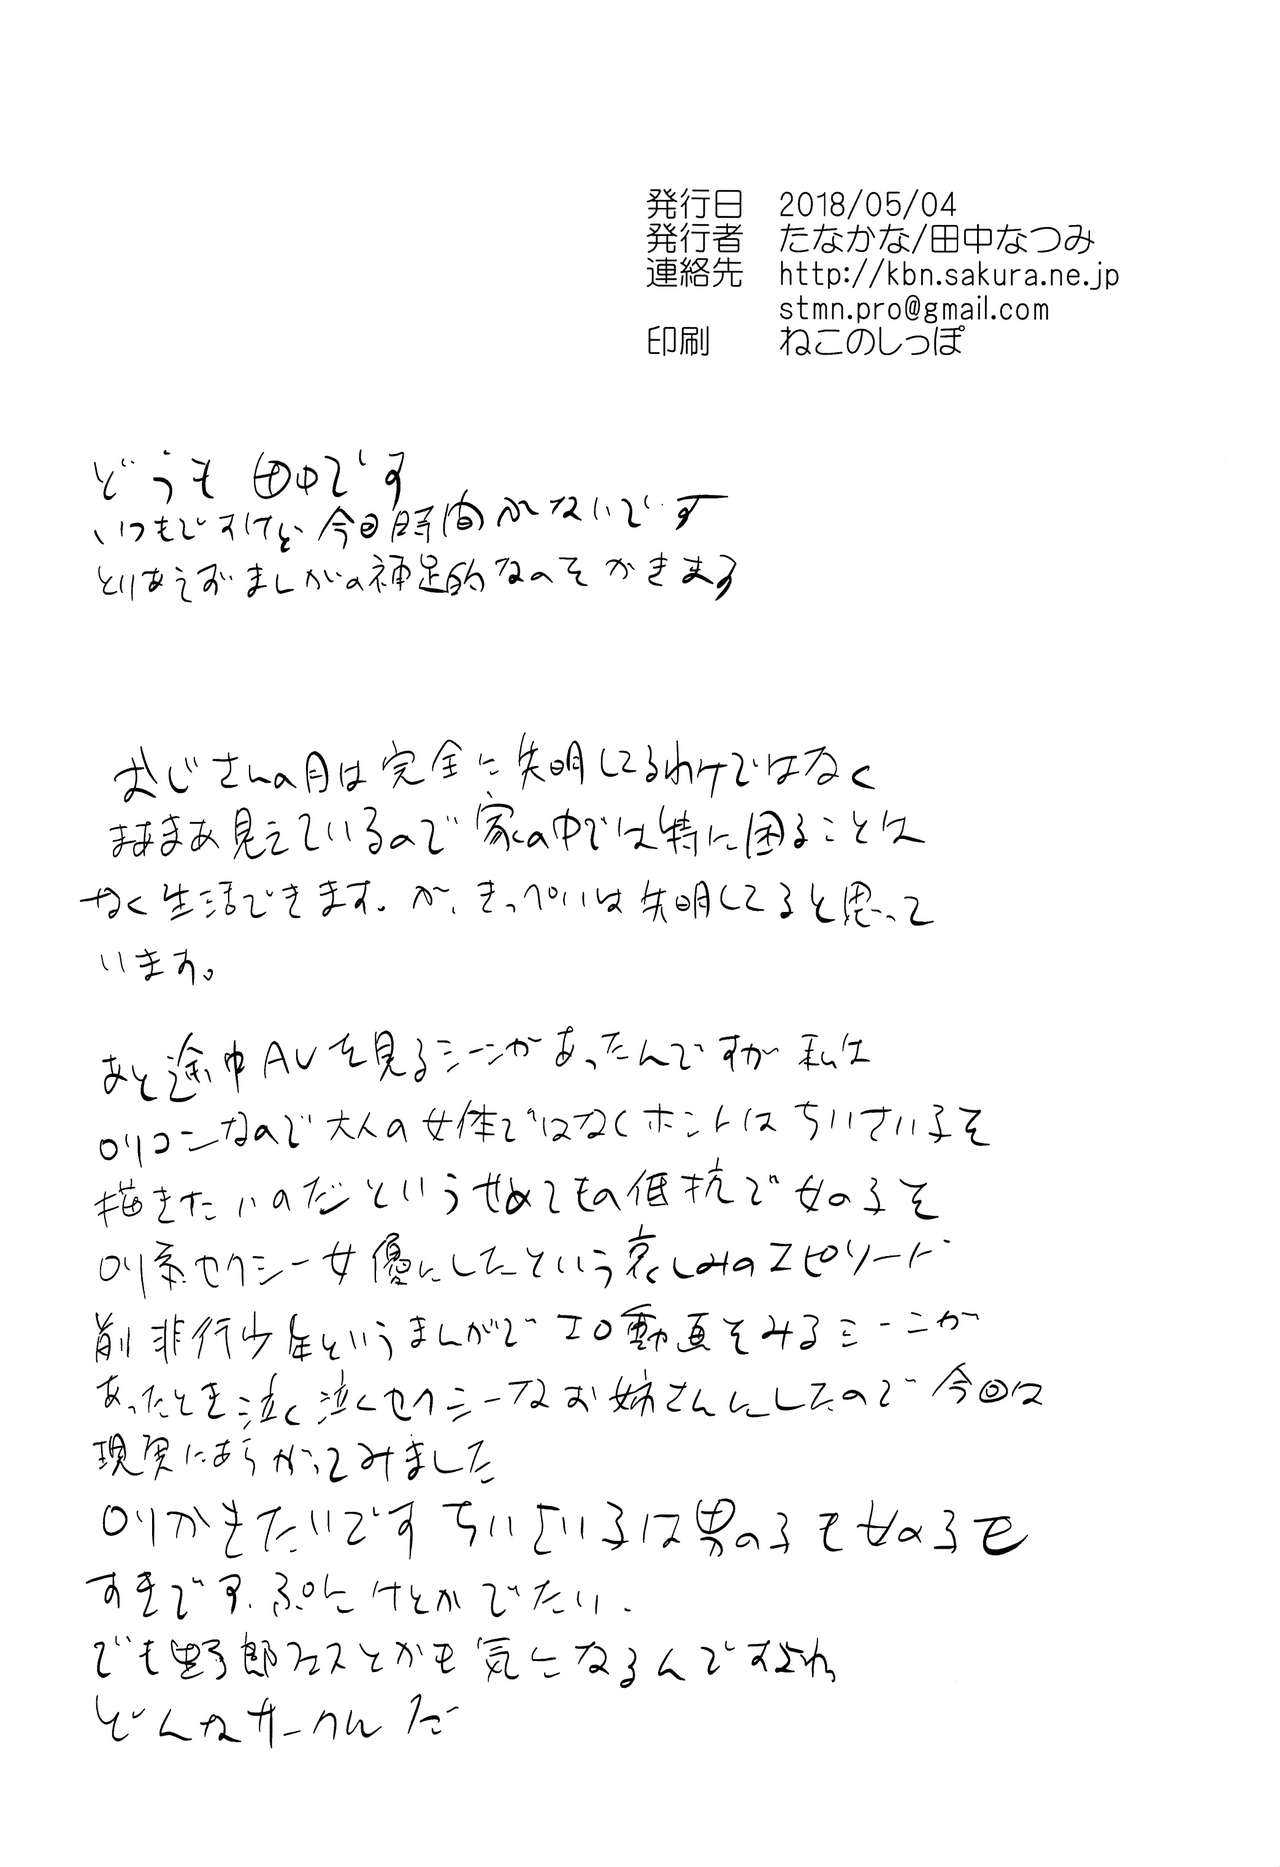 発行日 2018/05/04
発行者 たなかな/田中なつみ
連絡先 http://kbn.sakura.ne.jp
stmn.pro@gmail.com
印刷 ねこのしっぽ
どうも 田中です
いつもですけど今回時間がないです
とりあえずまんがの補足的なのをかきます
おじさんの目は完全に失明してるわけではなく
まあまあ見えているので家の中では特に困ることは
なく生活できます。が、きっぺいは失明してると思って
います。
あと途中AVを見るシーンがあったんですが 私は
ロリコンなので大人の女体ではなくホントはちいさい子を
描きたいのだというせめてもの低抗で女の子を
ロリ系セクシー女優にしたという哀しみのエピソード
前 非行少年というまんがでエロ動画をみるシーンが
あったとき泣く泣くセクシーなお姉さんにしたので今回は
現実にあらがってみました
ロリかきたいです ちいさい子は男の子も女の子も
すきです、ぷにけとかでたい、
でも野郎フェスとかも気になるんですよね
どんなサークルだ